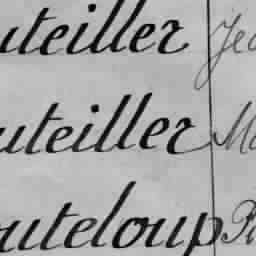 uteiller Jea
uteiller Ma
outeloup Pi